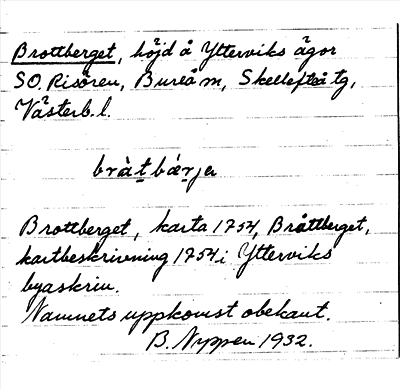 Brottberget, höjd å Ytterviks ägor
SO. Risören, Bureå m, Skellefteå tg,
Västerb. l.
bråt bǽrjer
Brottberget, karta 1754, Bråttberget,
kartbeskrivning 1754 i Ytterviks
byaskrin.
Namnets uppkomst obekant.
B. Nyppen 1932.